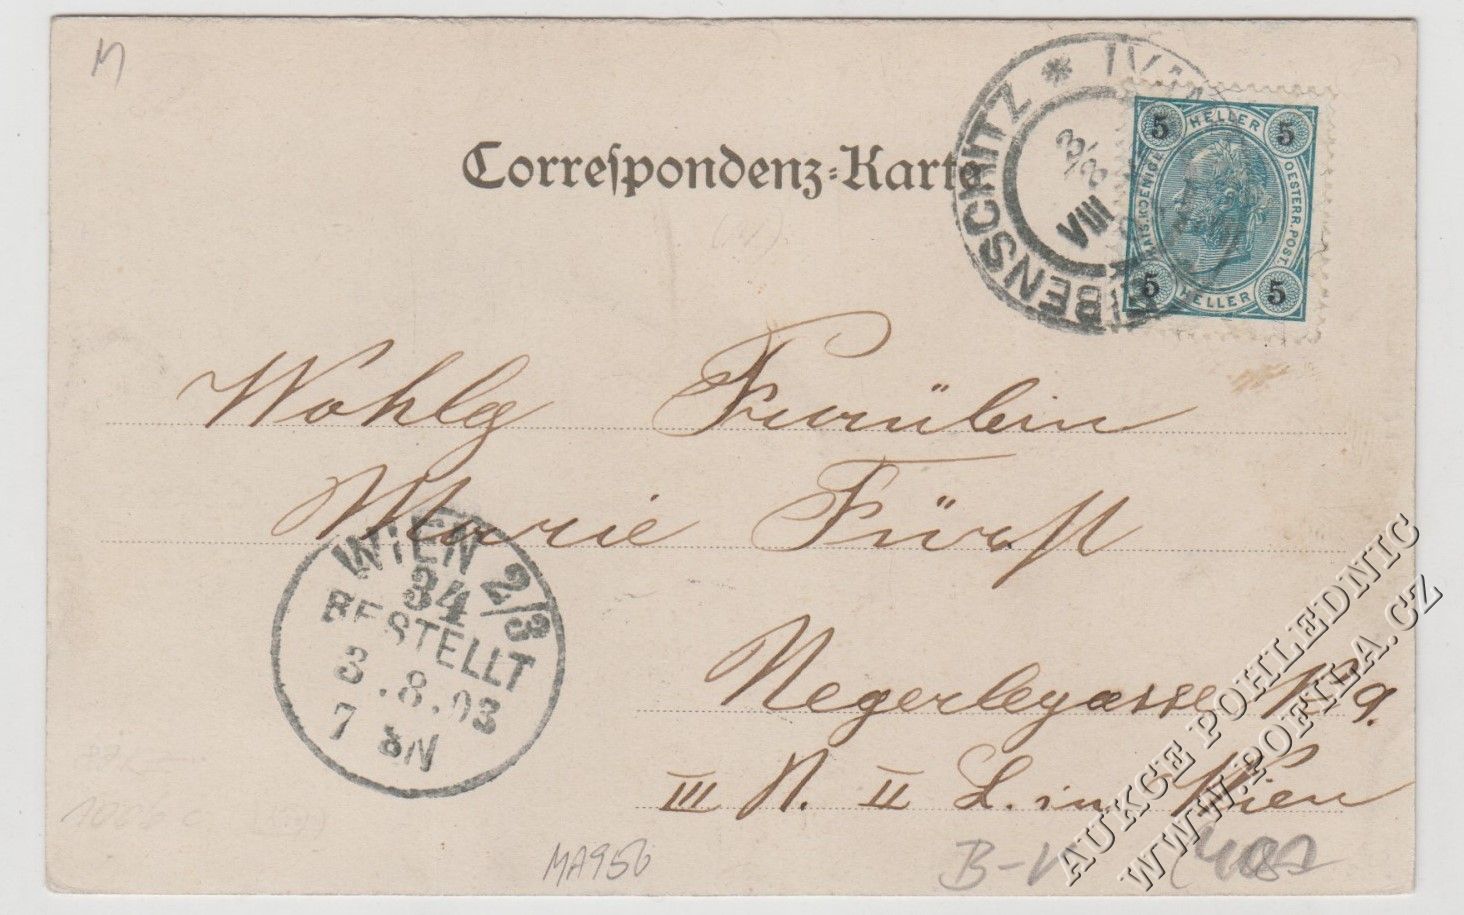 M
Correspondenz-Karte
EIBENSCHITZ * IVAN
3/8
VIII
5 HELLER 5
KAIS. KOENIGL. OESTERR. POST.
5 HELLER 5
Wohlg Fräulein
Marie Fürst
Negerlegasse No 9.
III N. II L. in Wien
WIEN 2/3
34
BESTELLT
3.8.03
7 - 8N
MA956
AUKCE POHLEDNIC
WWW.POFILA.CZ